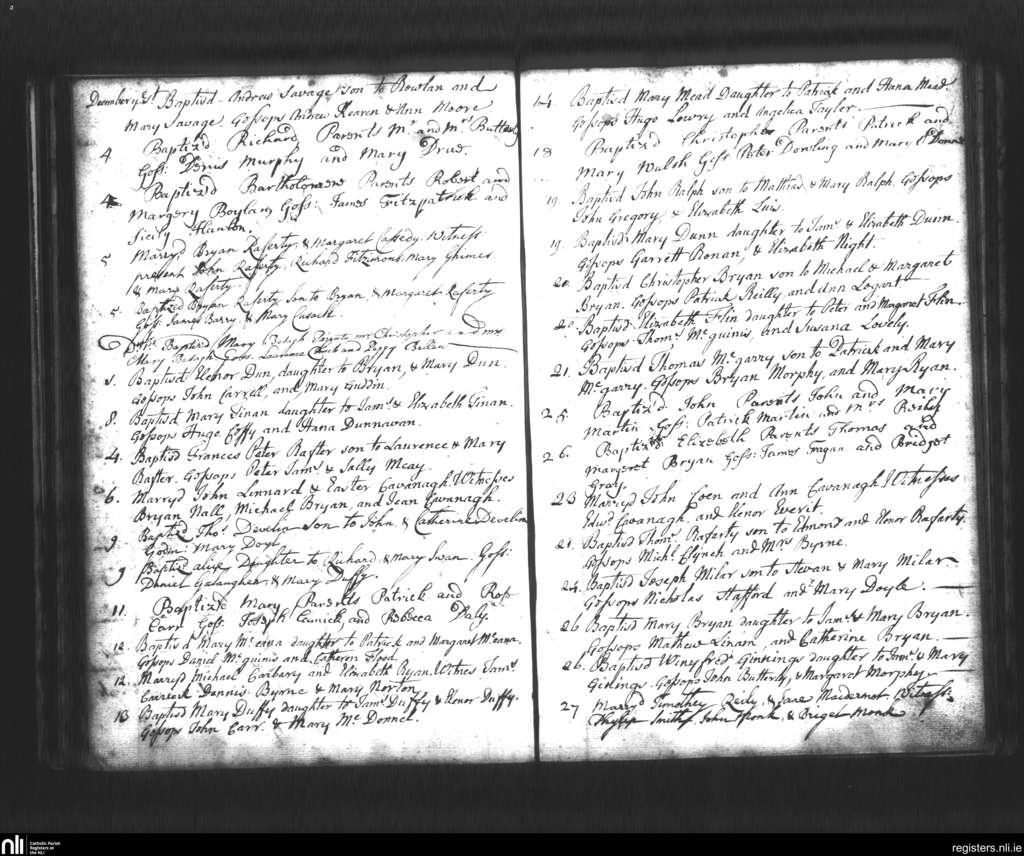 December ye 1st. Baptisd Andrew Savage son to Rowlan and
Mary Savage. Gossops Andrew Kearen & Ann Moore
4 Baptiz'd Richard Parents Mr. and Mrs. Butterly
Goss: Denis Murphy and Mary Drue.
4 Baptiz'd Bartholomew Parents Robert and
Margery Boylan Goss: James Fitzpatrick and
Sicily Hanlon.
5 Marry'd Bryan Raferty, & Margaret Cassedy. Witness
present John Raferty, Richard Fitzimons, Mary Ghimes.
& Mary Raferty.
5. Baptized Bryan Raferty, Son to Bryan, & Margaret Raferty
Goss: James Barry, & Mary Cusack.
Baptiz'd Mary Parents Mr Christopher and Mrs
Mary Goss. Laurence and
8. Baptisd Elenor Dun, daughter to Bryan, & Mary Dun.
Gossops John Carrell, and Mary Guddin.
8. Baptisd Mary Linan daughter to Jams. & Elizabeth Linan.
Gossops Huge Coffy and Hana Dunnavan.
4. Baptisd Frances Peter Rafter son to Laurence & Mary
Rafter. Gossops Peter Jams. & Salley Meay.
6. Marryd John Lennard & Easter Cavanagh. Witnesses
Bryan Nall, Michael Bryan, and Jean Cavanagh.
9. Baptiz'd Thos. Develin Son to John, & Catherine Develin
Godm: Mary Doyl.
9 Baptiz'd alice Daughter to Richard, & Mary Swan. Goss:
Daniel Galaugher, & Mary Duffy.
11. Baptiz'd Mary Parents Patrick and Ross
Carr Goss: Joseph and Rebecca Daly.
12. Baptisd Mary Mc.cana daughter to Patrick and Margaret Mc.cana.
Gossops Daniel Mc.guinis and Catheron Flood.
12. Marryd Michael Carbary and Elizabeth Ryan. Witnes. Jams.
Carrick Dennis Byrne & Mary Norton
13 Baptisd Mary Duffy daughter to Jams. Duffy & Honor Duffy.
Gossops John Carr. & Mary Mc.Donnel.
14. Baptisd Mary Mead Daughter to Patrick and Hana Mead
Gossops Hugo Lowry and Angelica Taylor.
18 Baptiz'd Christopher Parents Patrick and
Mary Walsh Goss Peter Dowling and Mary
19. Baptisd John Ralph son to Mathias & Mary Ralph. Gossops
John Gregory, & Elizabeth Luis.
19. Baptisd Mary Dunn daughter to Jams. & Elizabeth Dunn.
Gossops Garrett Ronan, & Elizabeth Night.
20. Baptisd Christopher Bryan son to Michael & Margaret
Bryan. Gossops Patrick Reilly, and Ann
20. Baptisd Elizabeth Flin daughter to Peter and Margaret Flin.
Gossops Thoms. Mc.guinis, and Susana Lovely.
21. Baptisd Thomas Mc.garry son to Patrick and Mary
Mc.garry. Gossops Bryan Morphy, and Mary Ryan.
25 Baptiz'd John Parents John and Mary
Martin Goss: Patrick Martin and Mrs Reily
26. Baptiz'd Elizebeth Parents Thomas and
Margeret Bryan Goss: James Fragan and Bridget
Gray.
23 Marryd John Coen and Ann Cavanagh. Witnesses
Edwd. Cavanagh, and Elenor Everit.
21. Baptisd Thoms. Rafarty son to Edmond and Honor Rafarty.
Gossops Michl. Glynch and Mrs. Byrne.
24. Baptisd Joseph Milar son to Stevan & Mary Milar.
Gossops Nicholas Stafford and Mary Doyle.
26 Baptisd Mary Bryan daughter to Jams. & Mary Bryan.
Gossops Mathew Linan, and Catherine Bryan.
26. Baptisd Winyfred Ginnings daughter to Jams. & Mary
Ginings. Gossops John Butterly, & Margaret Morphey.
27 Mary'd Timothey Reily, & Jane Madermot Witness:
Phylip Smith, John Monk, & Briget Monk
nli
Catholic Parish
Registers at
the NLI
registers.nli.ie